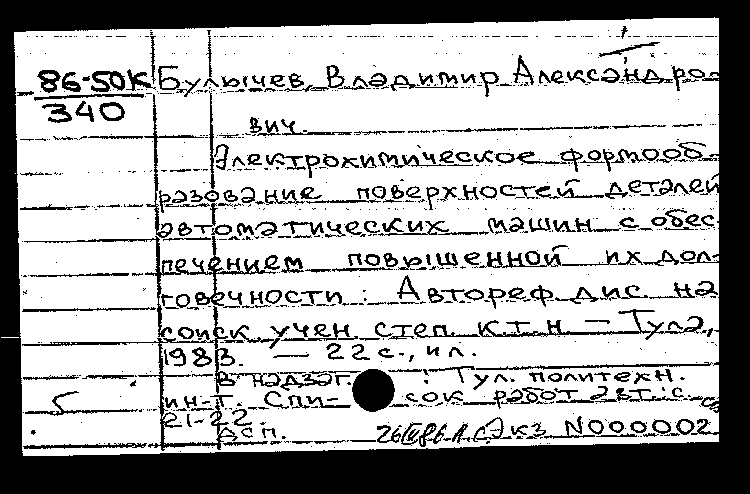 86-50К Булычев, Владимир Александро-
340
вич.
Электрохимическое формооб-
разование поверхностей деталей
автоматических машин с обес-
печением повышенной их дол-
говечности : Автореф. дис. на
соиск. учен. степ. к.т.н. — Тула,
1983. — 22 с., ил.
В надзаг. : Тул. политехн.
5 ин-т. Спи- сок работ авт.: с.
21-22.
Экз N000002